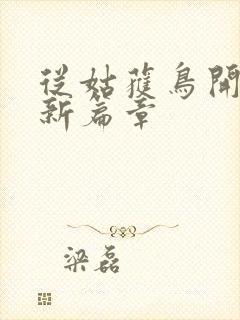 從姑蔍鳥開
新篇章
梁磊